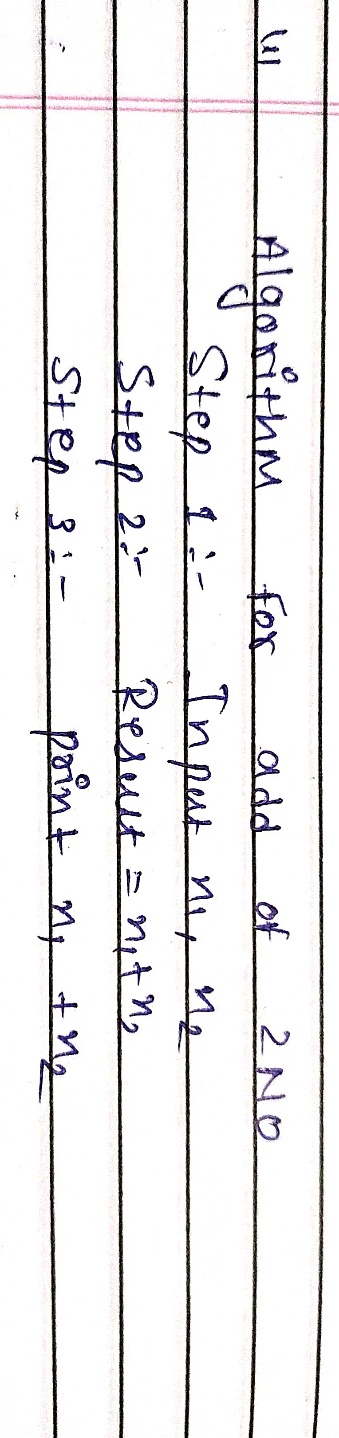 Algorithm for add of 2 NO
Step 1 :- Input n1, n2
Step 2:- Result = n1+n2
Step 3 :- print n1 + n2